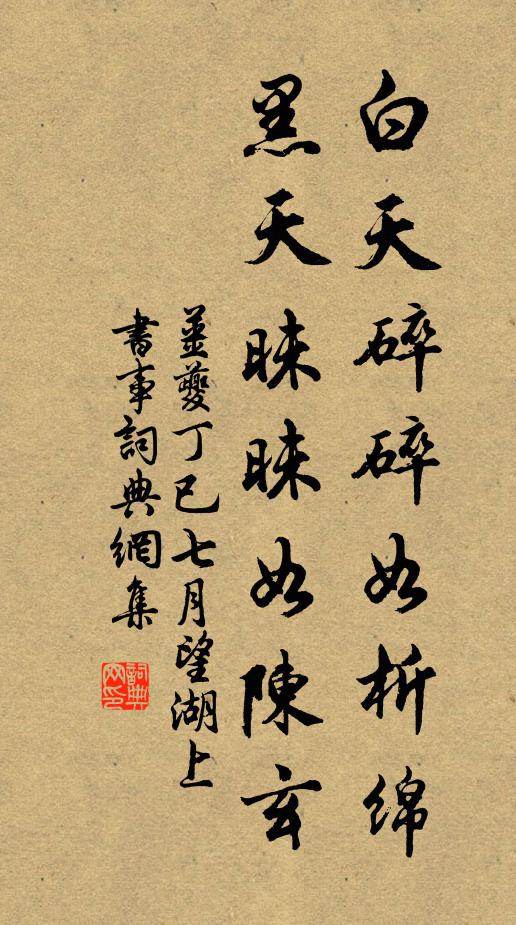 白天碎碎如析绵
黑天昧昧如陳玄
薑夔丁巳七月望湖上
書事詞典網集
詞典
网印